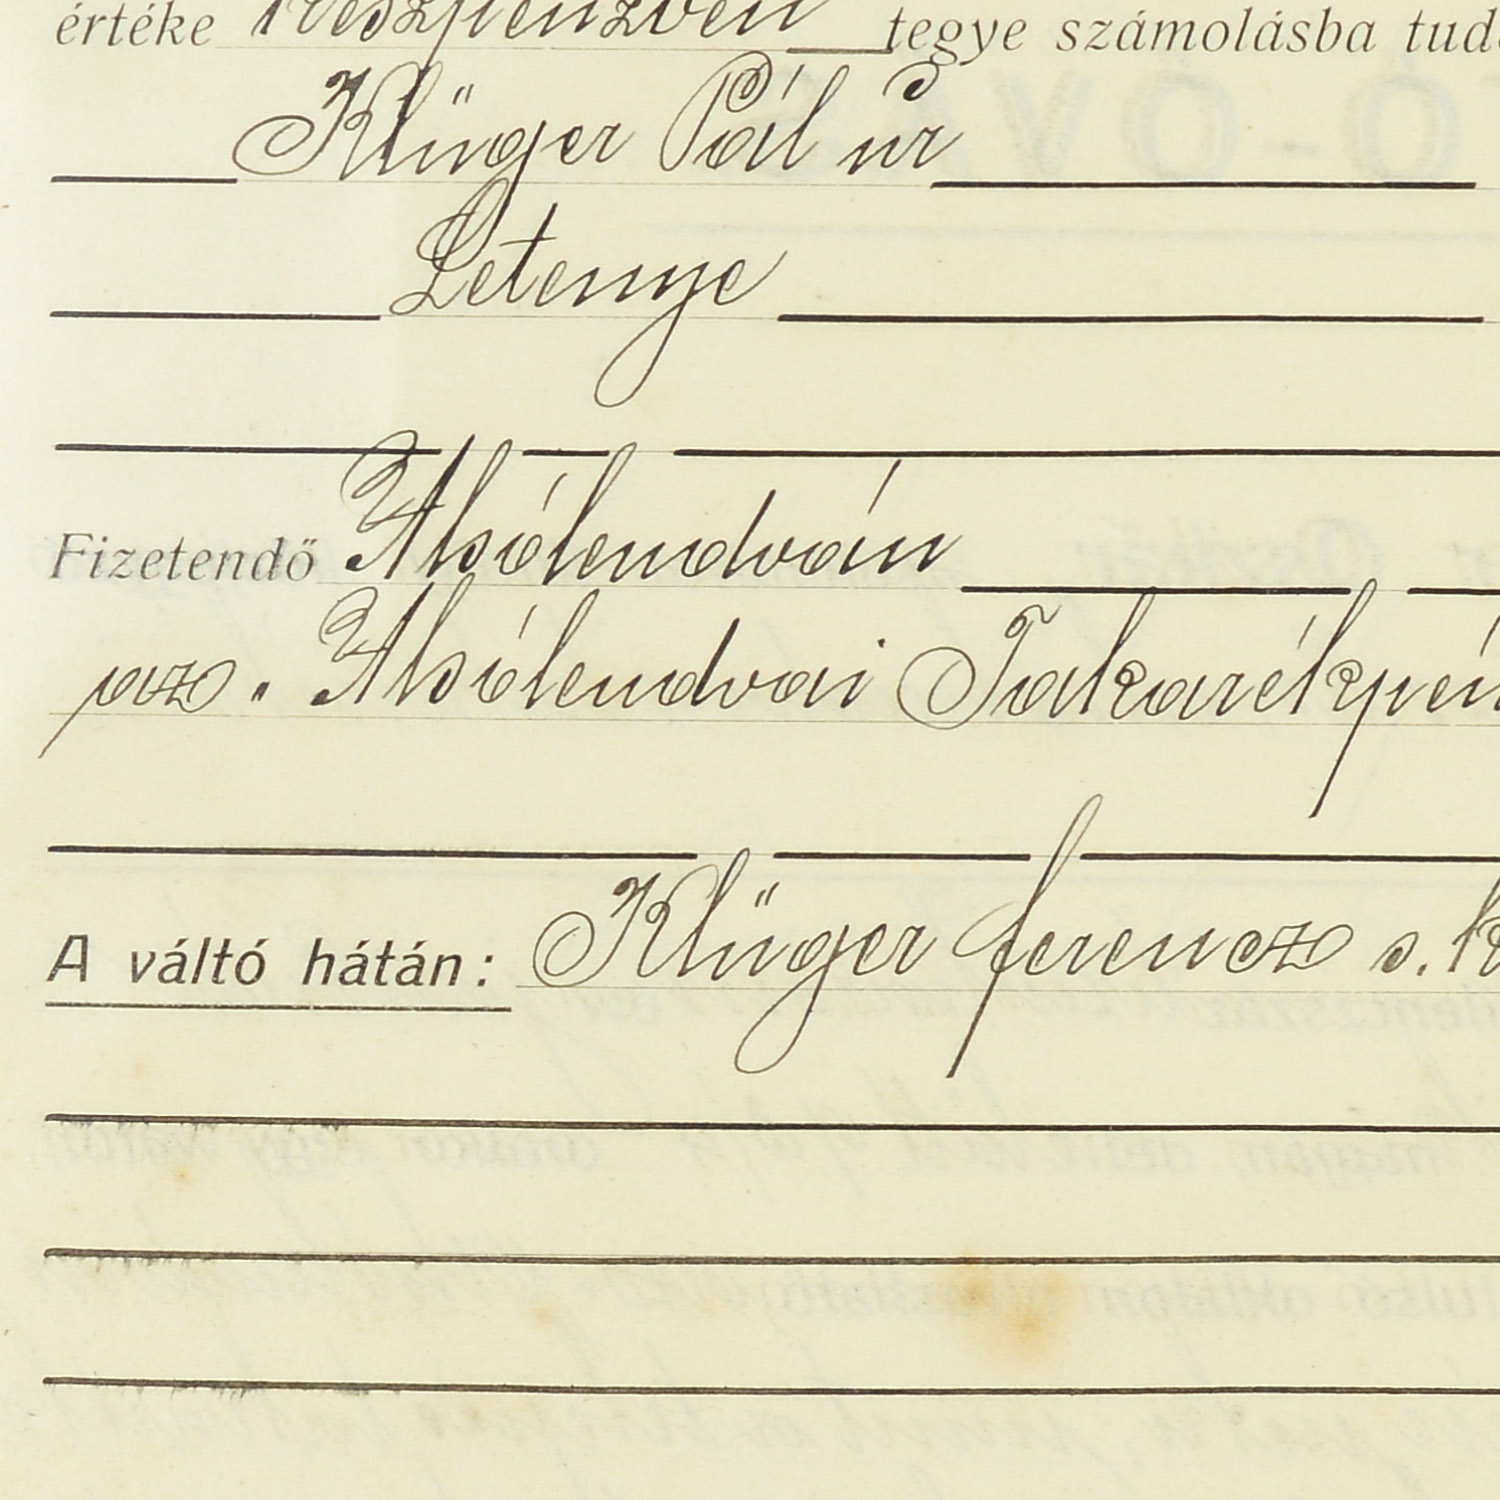 értéke készpénzben tegye számolásba
Klüger Pál úr
Letenye
Fizetendő Alsólendván
az. Alsólendvai Takarékpén
A váltó hátán: Klüger ferencz s. k